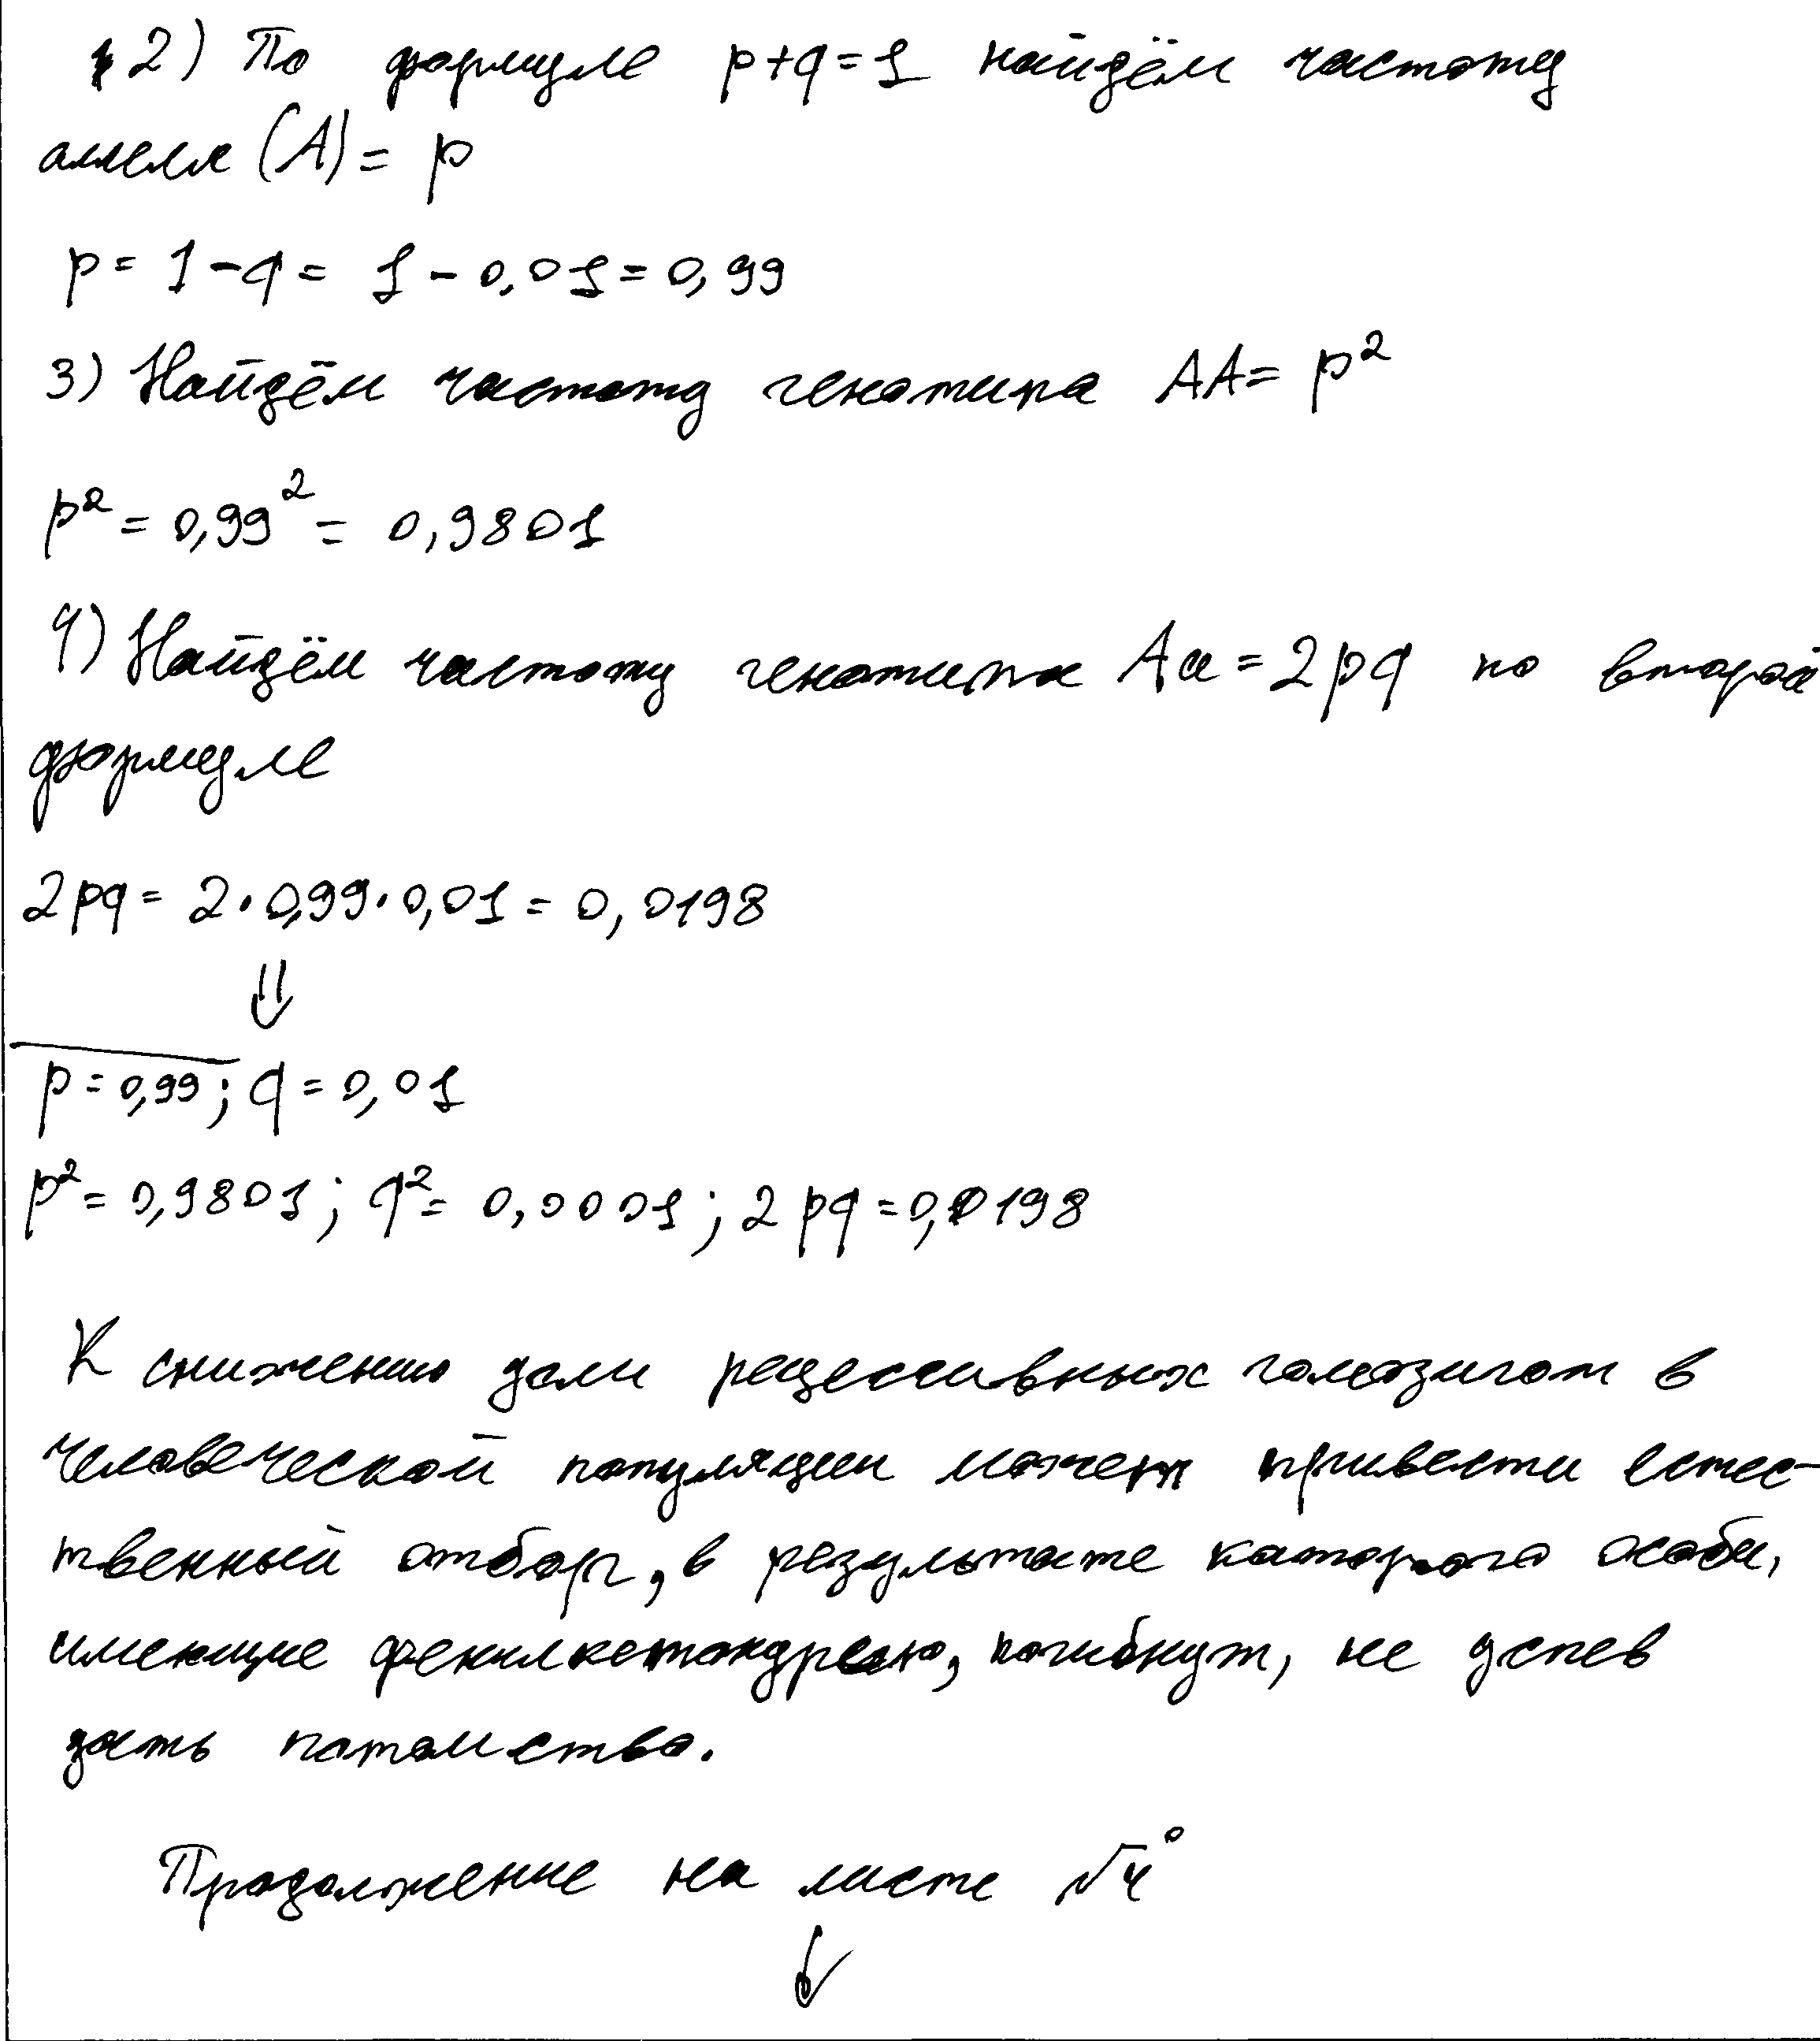 2) По формуле p+q=1 найдём частоту
аллеля (A) = p
p = 1 - q = 1 - 0,01 = 0,99
3) Найдём частоту генотипа AA = p²
p² = 0,99² = 0,9801
4) Найдём частоту генотипа Aa = 2pq по второй
формуле
2pq = 2·0,99·0,01 = 0,0198
⇓
p = 0,99; q = 0,01
p² = 0,9801; q² = 0,0001; 2pq = 0,0198
К снижению доли рецессивных гомозигот в
человеческой популяции может привести естес-
твенный отбор, в результате которого особи,
имеющие фенилкетонурию, погибнут, не успев
дать потомство.
Продолжение на листе №4
↓